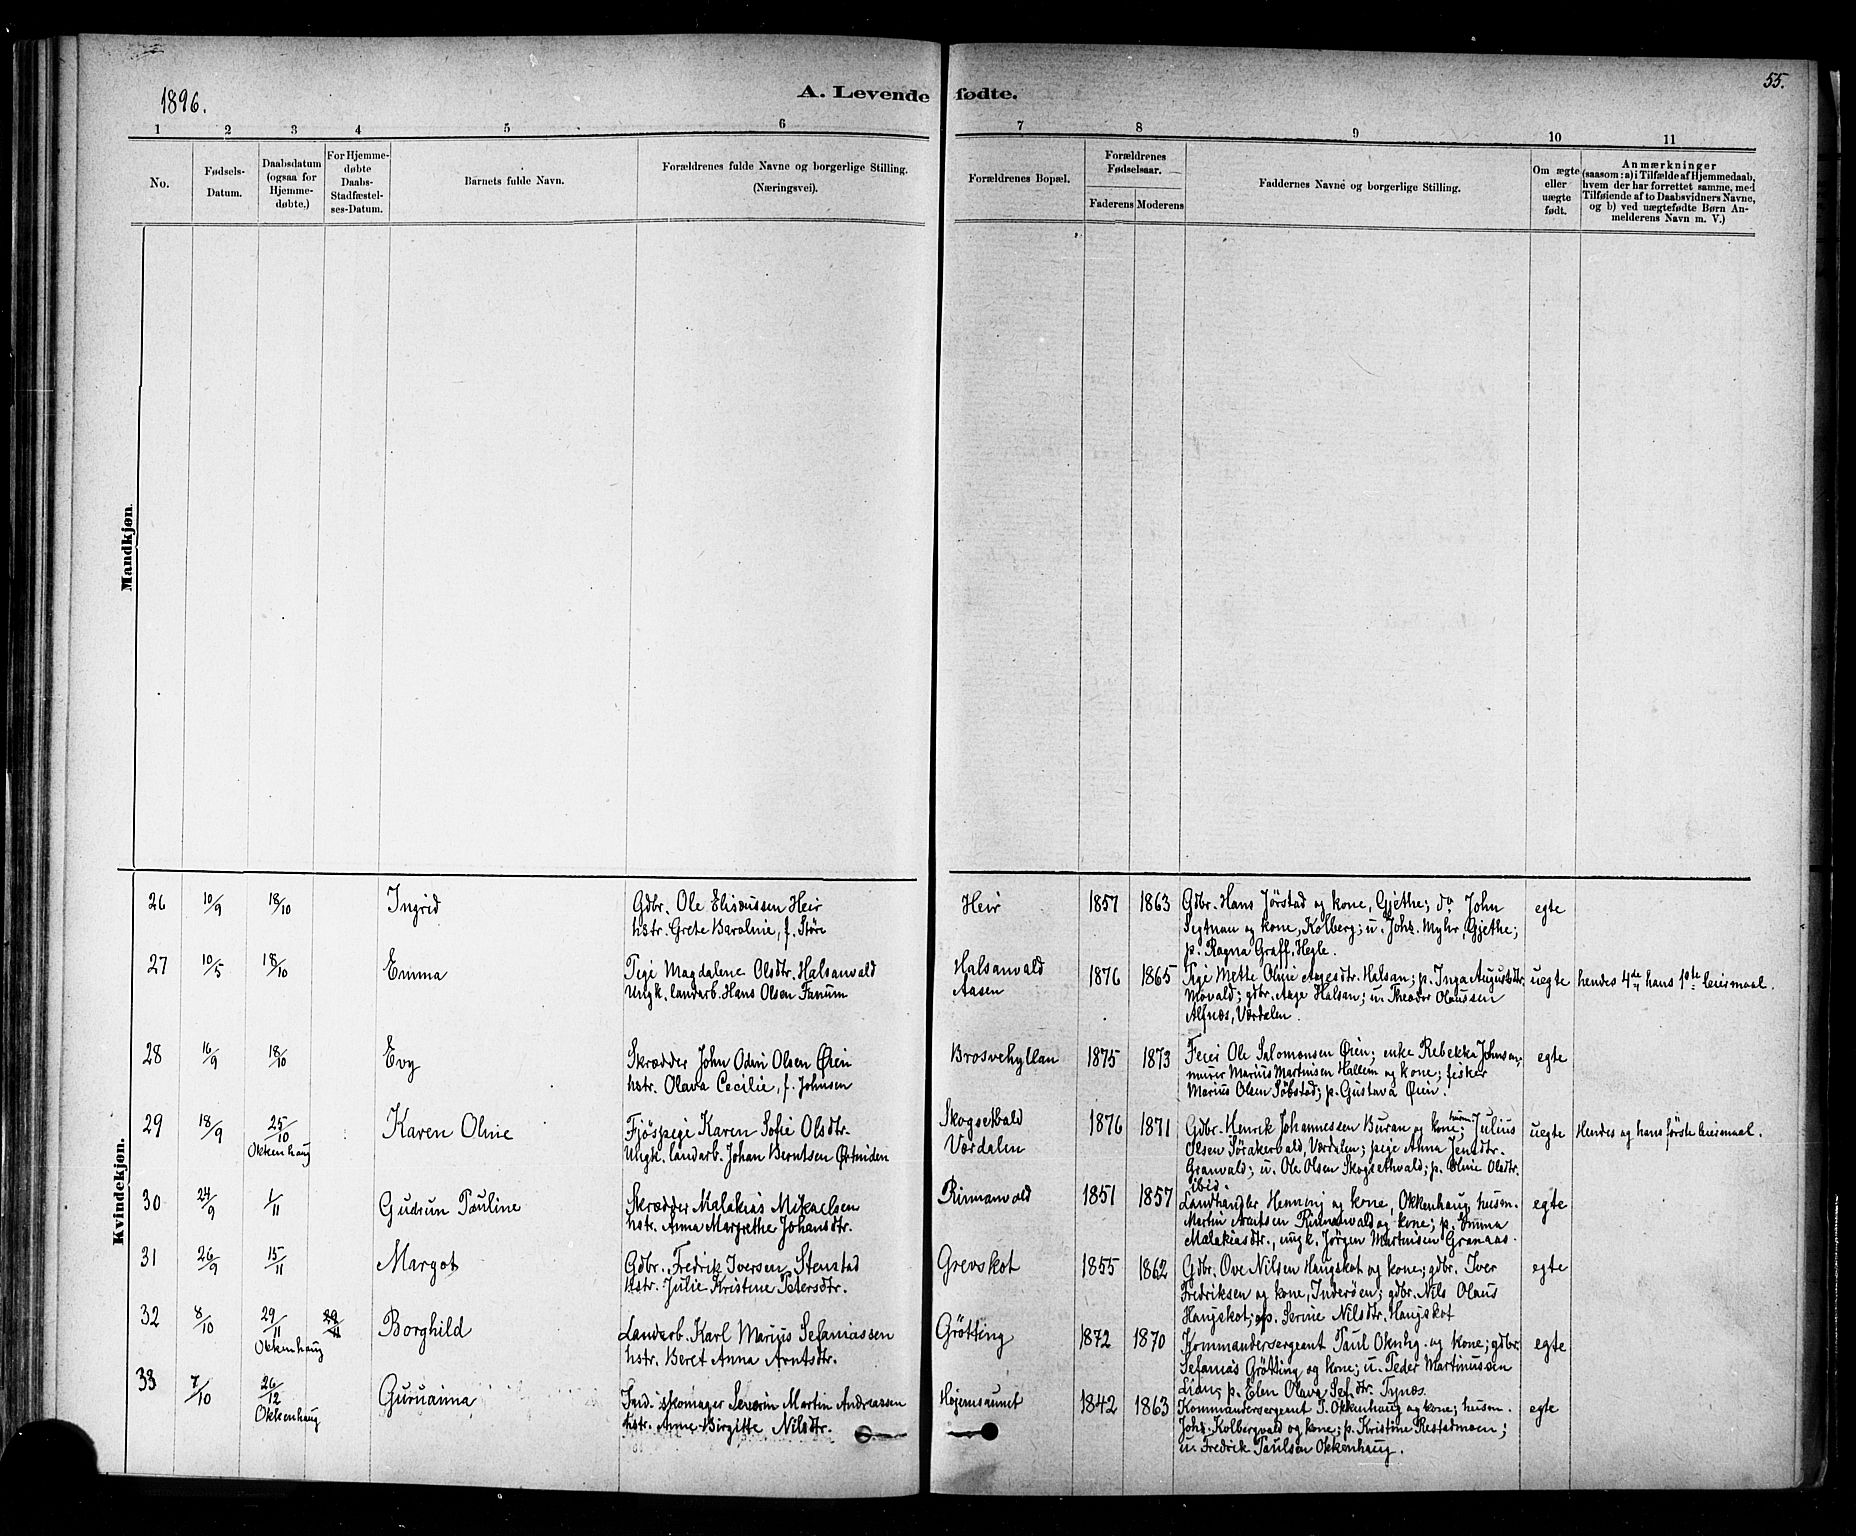 1896.
A. Levende fødte.
55.
1 2 3 4 5 6 7 8 9 10 11
No.
Fødsels-
Datum.
Daabsdatum
(ogsaa for
Hjemme-
døbte.)
For Hjemme-
døbte
Daabs-
Stadfæstel-
ses-Datum.
Barnets fulde Navn.
Forældrenes fulde Navne og borgerlige Stilling.
(Næringsvei).
Forældrenes Bopæl.
Forældrenes
Fødselsaar.
Faderens Moderens
Faddernes Navne og borgerlige Stilling.
Om ægte
eller
uægte
født.
Anmærkninger
(saasom: a) i Tilfælde af Hjemmedaab,
hvem der har forrettet samme, med
Tilføiende af to Daabsvidners Navne,
og b) ved uægtefødte Børn An-
melderens Navn m. V.)
Mandkjøn.
Kvindekjøn.
26 10/9 18/10 Ingrid
Gdbr. Ole Elisæussen Heir
hstr. Grete Baroline, f. Støre
Heir 1857 1863
Gdbr. Hans Jørstad og kone, Gjethe; do John
Segtnan og kone, Kolberg; u. Johs. Myhr, Gjethe;
p. Ragna Graff, Hegle.
egte
27 10/5 18/10 Emma
Pige Magdalene Olsdtr. Halsanvald
Ungk. landarb. Hans Olsen Fanum
Halsanvald
Aasen
1876 1865
Pige Mette Oline Aagesdtr. Halsan; p. Inga Augustdtr.
Movald; gdbr. Aage Halsan; u. Theodor Olaussen
Alfnæs, Værdalen.
uegte
hendes 4de, hans 1ste leiermaal.
28 16/9 18/10 Evy
Skrædder John Odin Olsen Øien
hstr. Olava Cecilie, f. Johnsen
Brosvehyllan 1875 1873
Feier Ole Salomonsen Øien; enke Rebekka Johnsen;
murer Marius Martinsen Hallem og kone; fisker
Marius Olsen Søbstad; p. Gustava Øien.
egte
29 18/9 25/10 Okkenhaug
Karen Oline
Fjøspige Karen Sofie Olsdtr.
Ungk. landarb. Johan Berntsen Østniden
Skogsethvald
Værdalen
1876 1871
Gdbr. Henrik Johannessen Buran og kone; husm. Julius
Olsen Sørakervald, Værdalen; pige Anna Jensdtr.
Granvald; u. Ole Olsen Skogsethvald; p. Oline Olsdtr.
ibid.
uegte
Hendes og hans første leiermaal.
30 24/9 1/11 Gudrun Pauline
Skrædder Malakias Mikaelsen
hstr. Anna Margrethe Johansdtr.
Rinnanvald 1851 1857
Landhandler Henning og kone, Okkenhaug; husm.
Martin Arntsen Rinnanvald og kone; p. Emma
Malakiasdtr., ungk. Jørgen Martinsen Granaas.
egte
31 26/9 15/11 Margot
Gdbr. Fredrik Iversen Stenstad
hstr. Julie Kristine Petersdtr.
Grevskot 1855 1862
Gdbr. Ove Nilsen Haugskot og kone; gdbr. Iver
Fredriksen og kone, Inderøen; gdbr. Nils Olaus
Haugskot; p. Serine Nilsdtr. Haugskot
egte
32 8/10 29/11 Okkenhaug 29/11
Borghild
Landarb. Karl Marius Sefaniassen
hstr. Beret Anna Arntsdtr.
Grøtting 1872 1870
Kommandersergeant Paul Oknhg. og kone; gdbr.
Sefanias Grøtting og kone; u. Peder Martinussen
Lian; p. Elen Olava Sef.dtr. Tynæs.
egte
33 7/10 26/12 Okkenhaug
Guruanna
Ind. skomager Severin Martin Andreassen
hstr. Anne Birgitte Nilsdtr.
Højemsaunet 1842 1863
Kommandersergeant P. Okkenhaug og kone; husm.
Johs. Kolbergvald og kone; p. Kristine Restadmoen;
u. Fredrik Paulsen Okkenhaug.
egte